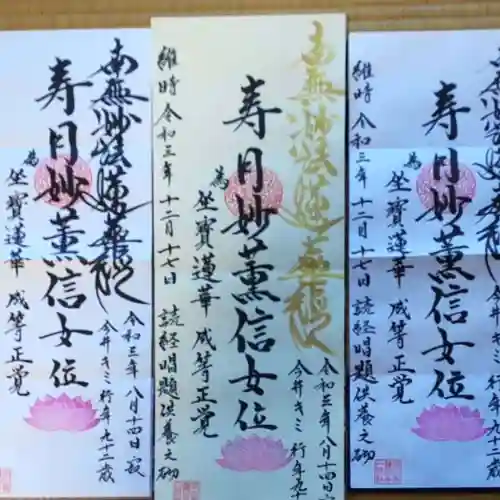 南無妙法蓮華経
令和三年 八月十四日 寂
今井キミ 行年九十二歳
寿月妙薫信女位
為 坐寶蓮華 成等正覚
南無妙法蓮華経
令和三年 八月十四日 寂
今井キミ 行年九十
寿月妙薫信女位
為 坐寶蓮華 成等正覚
維時 令和三年 十二月十七日 読経唱題供養之砌
今井キミ 行年九十
寿月妙薫信女位
為 坐寶蓮華 成等正覚
維時 令和三年 十二月十七日 読経唱題供養之砌